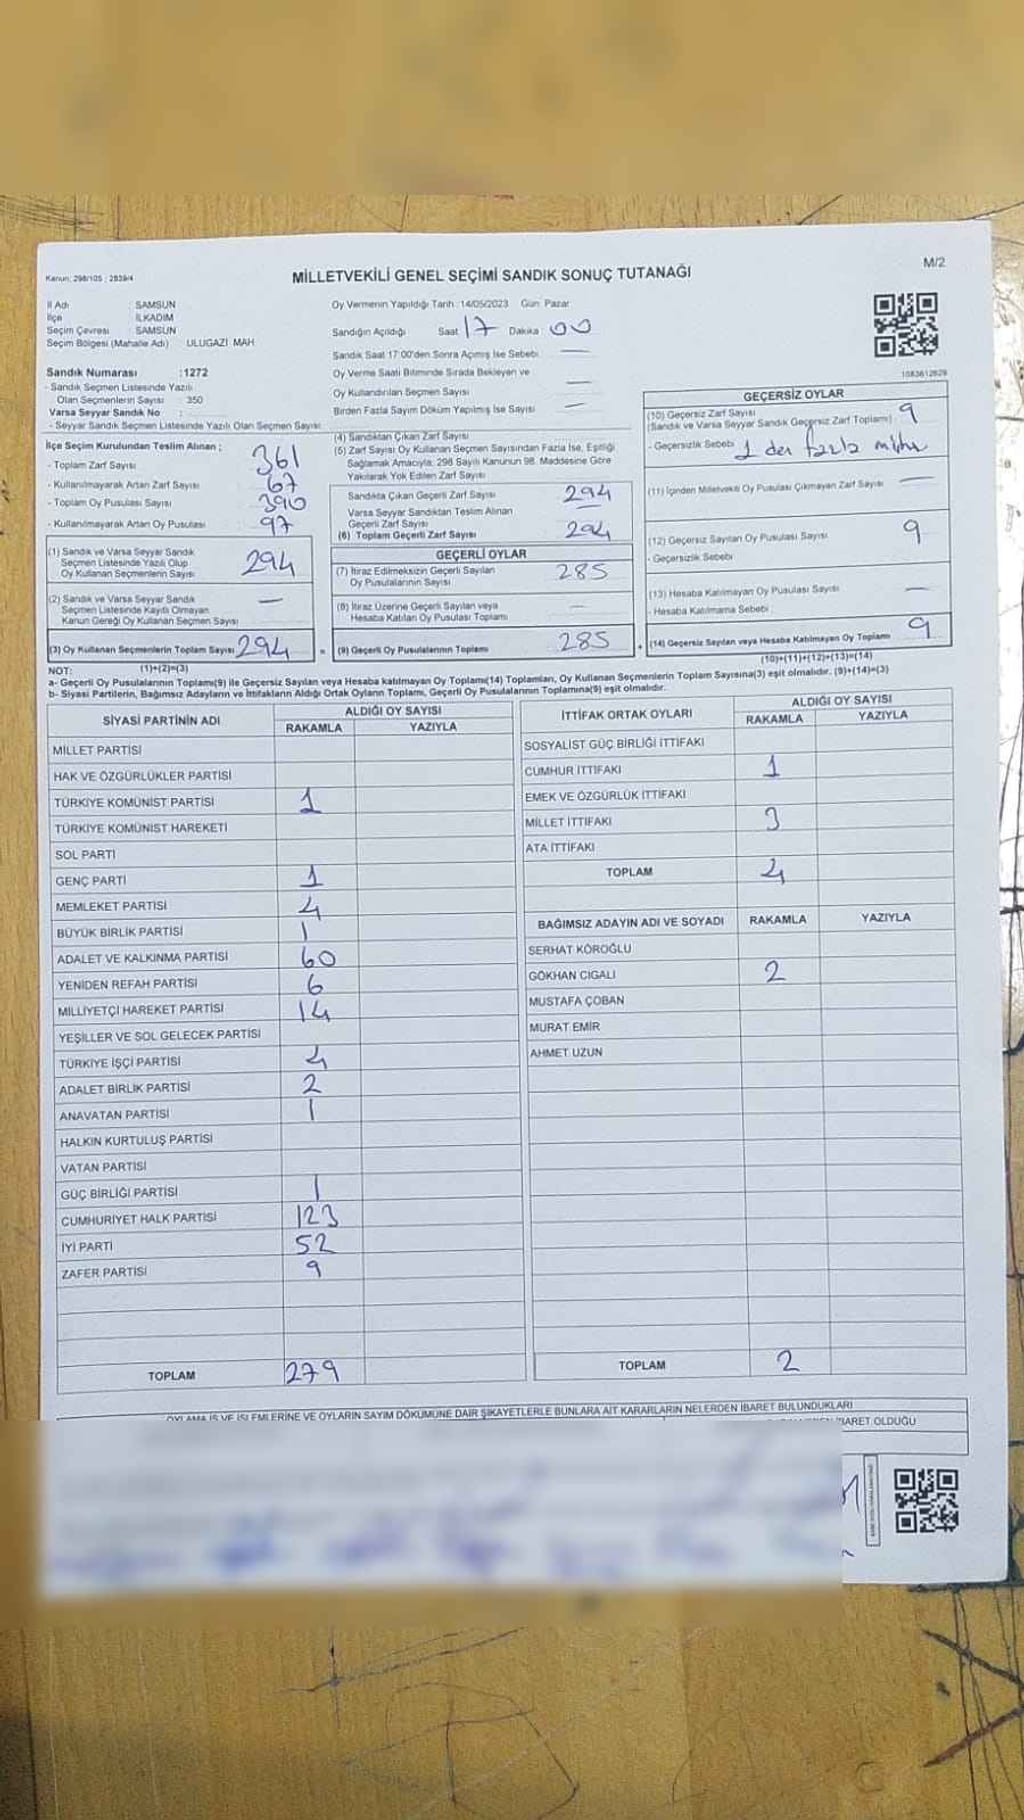 Kanun: 298/105 ; 2839/4
MİLLETVEKİLİ GENEL SEÇİMİ SANDIK SONUÇ TUTANAĞI
M/2
İl Adı : SAMSUN
İlçe : İLKADIM
Seçim Çevresi : SAMSUN
Seçim Bölgesi (Mahalle Adı) ULUGAZİ MAH
Sandık Numarası :1272
- Sandık Seçmen Listesinde Yazılı
Olan Seçmenlerin Sayısı : 350
Varsa Seyyar Sandık No :
- Seyyar Sandık Seçmen Listesinde Yazılı Olan Seçmen Sayısı:
Oy Vermenin Yapıldığı Tarih :14/05/2023 Gün: Pazar
Sandığın Açıldığı Saat 17 Dakika : 00
Sandık Saat 17:00'den Sonra Açılmış İse Sebebi : —
Oy Verme Saati Bitiminde Sırada Bekleyen ve
Oy Kullandırılan Seçmen Sayısı —
Birden Fazla Sayım Döküm Yapılmış İse Sayısı —
1083612829
İlçe Seçim Kurulundan Teslim Alınan ;
- Toplam Zarf Sayısı 361
- Kullanılmayarak Artan Zarf Sayısı 67
- Toplam Oy Pusulası Sayısı 390
- Kullanılmayarak Artan Oy Pusulası 97
(1) Sandık ve Varsa Seyyar Sandık
Seçmen Listesinde Yazılı Olup
Oy Kullanan Seçmenlerin Sayısı 294
(2) Sandık ve Varsa Seyyar Sandık
Seçmen Listesinde Kayıtlı Olmayan
Kanun Gereği Oy Kullanan Seçmen Sayısı —
(3) Oy Kullanan Seçmenlerin Toplam Sayısı 294
(1)+(2)=(3)
(4) Sandıktan Çıkan Zarf Sayısı
(5) Zarf Sayısı Oy Kullanan Seçmen Sayısından Fazla İse, Eşitliği
Sağlamak Amacıyla; 298 Sayılı Kanunun 98. Maddesine Göre
Yakılarak Yok Edilen Zarf Sayısı
Sandıkta Çıkan Geçerli Zarf Sayısı 294
Varsa Seyyar Sandıktan Teslim Alınan
Geçerli Zarf Sayısı
(6) Toplam Geçerli Zarf Sayısı 294
GEÇERLİ OYLAR
(7) İtiraz Edilmeksizin Geçerli Sayılan
Oy Pusulalarının Sayısı 285
(8) İtiraz Üzerine Geçerli Sayılan veya
Hesaba Katılan Oy Pusulası Toplamı —
= (9) Geçerli Oy Pusulalarının Toplamı 285
GEÇERSİZ OYLAR
(10) Geçersiz Zarf Sayısı
(Sandık ve Varsa Seyyar Sandık Geçersiz Zarf Toplamı) 9
- Geçersizlik Sebebi 1 den fazla mühür
(11) İçinden Milletvekili Oy Pusulası Çıkmayan Zarf Sayısı —
(12) Geçersiz Sayılan Oy Pusulası Sayısı 9
- Geçersizlik Sebebi:
(13) Hesaba Katılmayan Oy Pusulası Sayısı —
- Hesaba Katılmama Sebebi :
+ (14) Geçersiz Sayılan veya Hesaba Katılmayan Oy Toplamı 9
(10)+(11)+(12)+(13)=(14)
NOT:
a- Geçerli Oy Pusulalarının Toplamı(9) ile Geçersiz Sayılan veya Hesaba katılmayan Oy Toplamı(14) Toplamları, Oy Kullanan Seçmenlerin Toplam Sayısına(3) eşit olmalıdır. (9)+(14)=(3)
b- Siyasi Partilerin, Bağımsız Adayların ve İttifakların Aldığı Ortak Oyların Toplamı, Geçerli Oy Pusulalarının Toplamına(9) eşit olmalıdır.
SİYASİ PARTİNİN ADI ALDIĞI OY SAYISI
RAKAMLA YAZIYLA
MİLLET PARTİSİ
HAK VE ÖZGÜRLÜKLER PARTİSİ
TÜRKİYE KOMÜNİST PARTİSİ 1
TÜRKİYE KOMÜNİST HAREKETİ
SOL PARTİ
GENÇ PARTİ 1
MEMLEKET PARTİSİ 4
BÜYÜK BİRLİK PARTİSİ 1
ADALET VE KALKINMA PARTİSİ 60
YENİDEN REFAH PARTİSİ 6
MİLLİYETÇİ HAREKET PARTİSİ 14
YEŞİLLER VE SOL GELECEK PARTİSİ
TÜRKİYE İŞÇİ PARTİSİ 4
ADALET BİRLİK PARTİSİ 2
ANAVATAN PARTİSİ 1
HALKIN KURTULUŞ PARTİSİ
VATAN PARTİSİ
GÜÇ BİRLİĞİ PARTİSİ 1
CUMHURİYET HALK PARTİSİ 123
İYİ PARTİ 52
ZAFER PARTİSİ 9
TOPLAM 279
İTTİFAK ORTAK OYLARI ALDIĞI OY SAYISI
RAKAMLA YAZIYLA
SOSYALİST GÜÇ BİRLİĞİ İTTİFAKI
CUMHUR İTTİFAKI 1
EMEK VE ÖZGÜRLÜK İTTİFAKI
MİLLET İTTİFAKI 3
ATA İTTİFAKI
TOPLAM 4
BAĞIMSIZ ADAYIN ADI VE SOYADI RAKAMLA YAZIYLA
SERHAT KÖROĞLU
GÖKHAN CIGALI 2
MUSTAFA ÇOBAN
MURAT EMİR
AHMET UZUN
TOPLAM 2
OYLAMA İŞ VE İŞLEMLERİNE VE OYLARIN SAYIM DÖKÜMÜNE DAİR ŞİKAYETLERLE BUNLARA AİT KARARLARIN NELERDEN İBARET BULUNDUKLARI
İBARET OLDUĞU